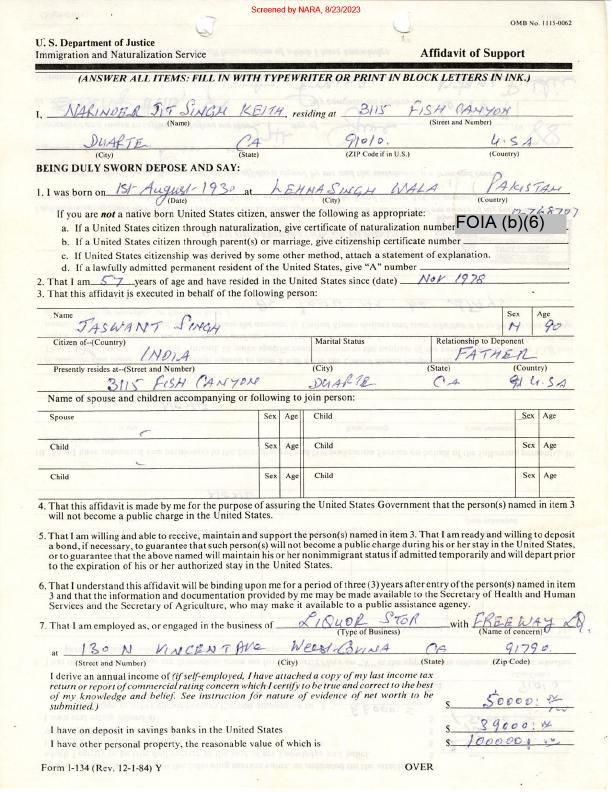 Screened by NARA, 8/23/2023
OMB No. 1115-0062
U. S. Department of Justice
Immigration and Naturalization Service
Affidavit of Support
(ANSWER ALL ITEMS: FILL IN WITH TYPEWRITER OR PRINT IN BLOCK LETTERS IN INK.)
I, NARINDER JIT SINGH KEITH, residing at 3115 FISH CANYON
(Name) (Street and Number)
DUARTE CA 91010. U.SA
(City) (State) (ZIP Code if in U.S.) (Country)
BEING DULY SWORN DEPOSE AND SAY:
1. I was born on 1st August-1930 at LEHNA SINGH WALA PAKISTAN
(Date) (City) (Country)
If you are not a native born United States citizen, answer the following as appropriate:
a. If a United States citizen through naturalization, give certificate of naturalization number FOIA (b)(6)
b. If a United States citizen through parent(s) or marriage, give citizenship certificate number
c. If United States citizenship was derived by some other method, attach a statement of explanation.
d. If a lawfully admitted permanent resident of the United States, give "A" number
2. That I am 57 years of age and have resided in the United States since (date) Nov 1978
3. That this affidavit is executed in behalf of the following person:
Name Sex Age
JASWANT SINGH M 90
Citizen of--(Country) Marital Status Relationship to Deponent
INDIA FATHER
Presently resides at--(Street and Number) (City) (State) (Country)
3115 FISH CANYON DUARTE CA U.SA
Name of spouse and children accompanying or following to join person:
Spouse Sex Age Child Sex Age
Child Sex Age Child Sex Age
Child Sex Age Child Sex Age
4. That this affidavit is made by me for the purpose of assuring the United States Government that the person(s) named in item 3
will not become a public charge in the United States.
5. That I am willing and able to receive, maintain and support the person(s) named in item 3. That I am ready and willing to deposit
a bond, if necessary, to guarantee that such person(s) will not become a public charge during his or her stay in the United States,
or to guarantee that the above named will maintain his or her nonimmigrant status if admitted temporarily and will depart prior
to the expiration of his or her authorized stay in the United States.
6. That I understand this affidavit will be binding upon me for a period of three (3) years after entry of the person(s) named in item
3 and that the information and documentation provided by me may be made available to the Secretary of Health and Human
Services and the Secretary of Agriculture, who may make it available to a public assistance agency.
7. That I am employed as, or engaged in the business of LIQUOR STOR with FREEWAY LQ.
(Type of Business) (Name of concern)
at 130 N VINCENT AVE West COVINA CA 91790.
(Street and Number) (City) (State) (Zip Code)
I derive an annual income of (if self-employed, I have attached a copy of my last income
tax return or report of commercial rating concern which I certify to be true and correct to the best
of my knowledge and belief. See instruction for nature of evidence of net worth to be
submitted.) $ 50000
I have on deposit in savings banks in the United States $ 39000
I have other personal property, the reasonable value of which is $ 100000
Form I-134 (Rev. 12-1-84) Y OVER